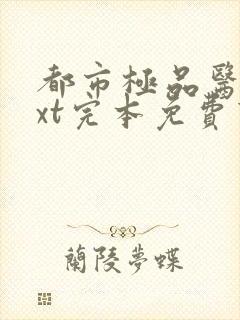 都市極品醫
xt完本免費
蘭陵夢蝶